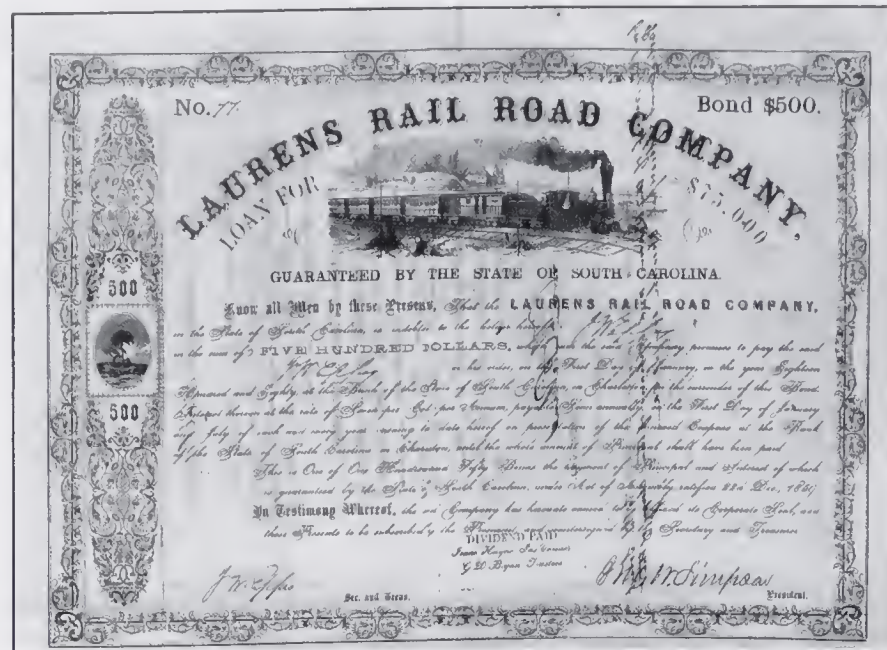 No. 77.
Bond $500.
LAURENS RAIL ROAD COMPANY,
LOAN FOR $75.000
GUARANTEED BY THE STATE OF SOUTH CAROLINA.
500
500
Know all Men by these Presents, That the LAURENS RAIL ROAD COMPANY,
in the State of South Carolina, is indebted to the
in the sum of FIVE HUNDRED DOLLARS, which sum the said Company promises to pay the said
or his order, on the First Day of January, in the year Eighteen
Hundred and Eighty, at the Bank of the State of South Carolina, in Charleston, on the surrender of this Bond.
Interest thereon at the rate of Seven per Cent. per Annum, payable Semi annually, on the First Day of January
and July of each and every year ensuing to date hereof on presentation of the annexed Coupons at the Bank
of the State of South Carolina in Charleston, until the whole amount of Principal shall have been paid
This is One of One Hundred and Fifty Bonds the payment of Principal and Interest of which
is guaranteed by the State of South Carolina, under Act of Assembly ratified 22d Dec,
In Testimony Whereof, the said Company has hereunto caused to be affixed its Corporate Seal, and
these Presents to be subscribed by the President, and countersigned by the Secretary and Treasurer
DIVIDEND PAID
Isaac Hayne
G D Bryan Trustees
Simpson
Sec. and Treas.
President.